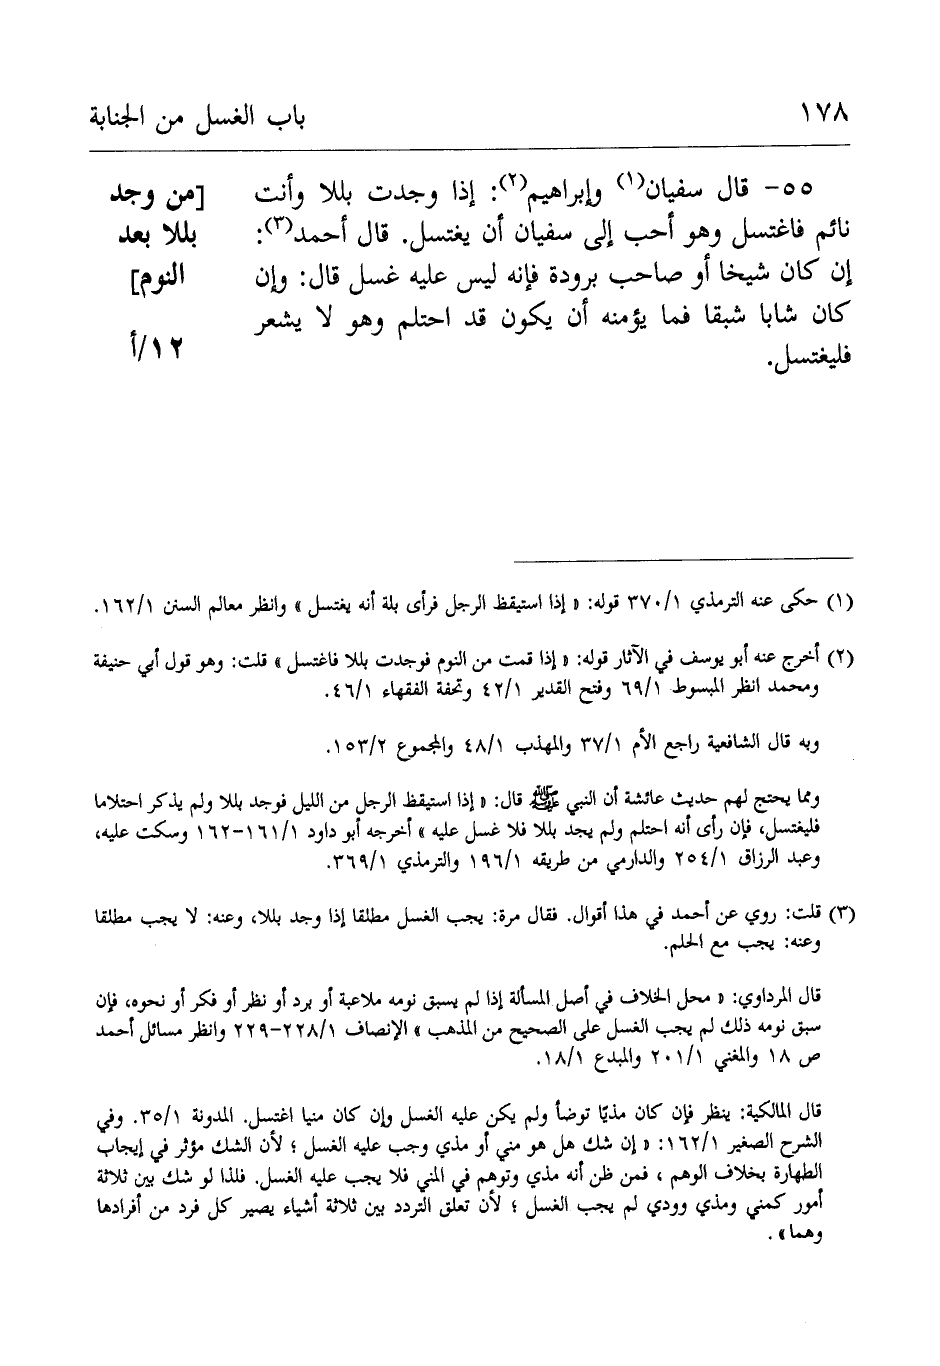 ١٧٨
باب الغسل من الجنابة
٥٥- قال سفيان(١) وإبراهيم(٢): إذا وجدت بللا وأنت
نائم فاغتسل وهو أحب إلى سفيان أن يغتسل. قال أحمد(٣):
إن كان شيخا أو صاحب برودة فإنه ليس عليه غسل قال: وإن
كان شابا شبقا فما يؤمنه أن يكون قد احتلم وهو لا يشعر
فليغتسل.
[من وجد
بللا بعد
النوم]
١٢/أ
(١) حكى عنه الترمذي ٣٧٠/١ قوله: « إذا استيقظ الرجل فرأى بلة أنه يغتسل » وانظر معالم السنن ١٦٢/١.
(٢) أخرج عنه أبو يوسف في الآثار قوله: « إذا قمت من النوم فوجدت بللا فاغتسل » قلت: وهو قول أبي حنيفة
ومحمد انظر المبسوط ٦٩/١ وفتح القدير ٤٢/١ وتحفة الفقهاء ٤٦/١.
وبه قال الشافعية راجع الأم ٣٧/١ والمهذب ٤٨/١ والمجموع ١٥٣/٢.
ومما يحتج لهم حديث عائشة أن النبي ﷺ قال: « إذا استيقظ الرجل من الليل فوجد بللا ولم يذكر احتلاما
فليغتسل، فإن رأى أنه احتلم ولم يجد بللا فلا غسل عليه » أخرجه أبو داود ١٦١/١-١٦٢ وسكت عليه،
وعبد الرزاق ٢٥٤/١ والدارمي من طريقه ١٩٦/١ والترمذي ٣٦٩/١.
(٣) قلت: روي عن أحمد في هذا أقوال. فقال مرة: يجب الغسل مطلقا إذا وجد بللا، وعنه: لا يجب مطلقا
وعنه: يجب مع الحلم.
قال المرداوي: « محل الخلاف في أصل المسألة إذا لم يسبق نومه ملاعبة أو برد أو نظر أو فكر أو نحوه، فإن
سبق نومه ذلك لم يجب الغسل على الصحيح من المذهب » الإنصاف ٢٢٨/١-٢٢٩ وانظر مسائل أحمد
ص ١٨ والمغني ٢٠١/١ والمبدع ١٨/١.
قال المالكية: ينظر فإن كان مذيًا توضأ ولم يكن عليه الغسل وإن كان منيا اغتسل. المدونة ٣٥/١. وفي
الشرح الصغير ١٦٢/١: « إن شك هل هو مني أو مذي وجب عليه الغسل ؛ لأن الشك مؤثر في إيجاب
الطهارة بخلاف الوهم ، فمن ظن أنه مذي وتوهم في المني فلا يجب عليه الغسل. فلذا لو شك بين ثلاثة
أمور كمني ومذي وودي لم يجب الغسل ؛ لأن تعلق التردد بين ثلاثة أشياء يصير كل فرد من أفرادها
وهما» .